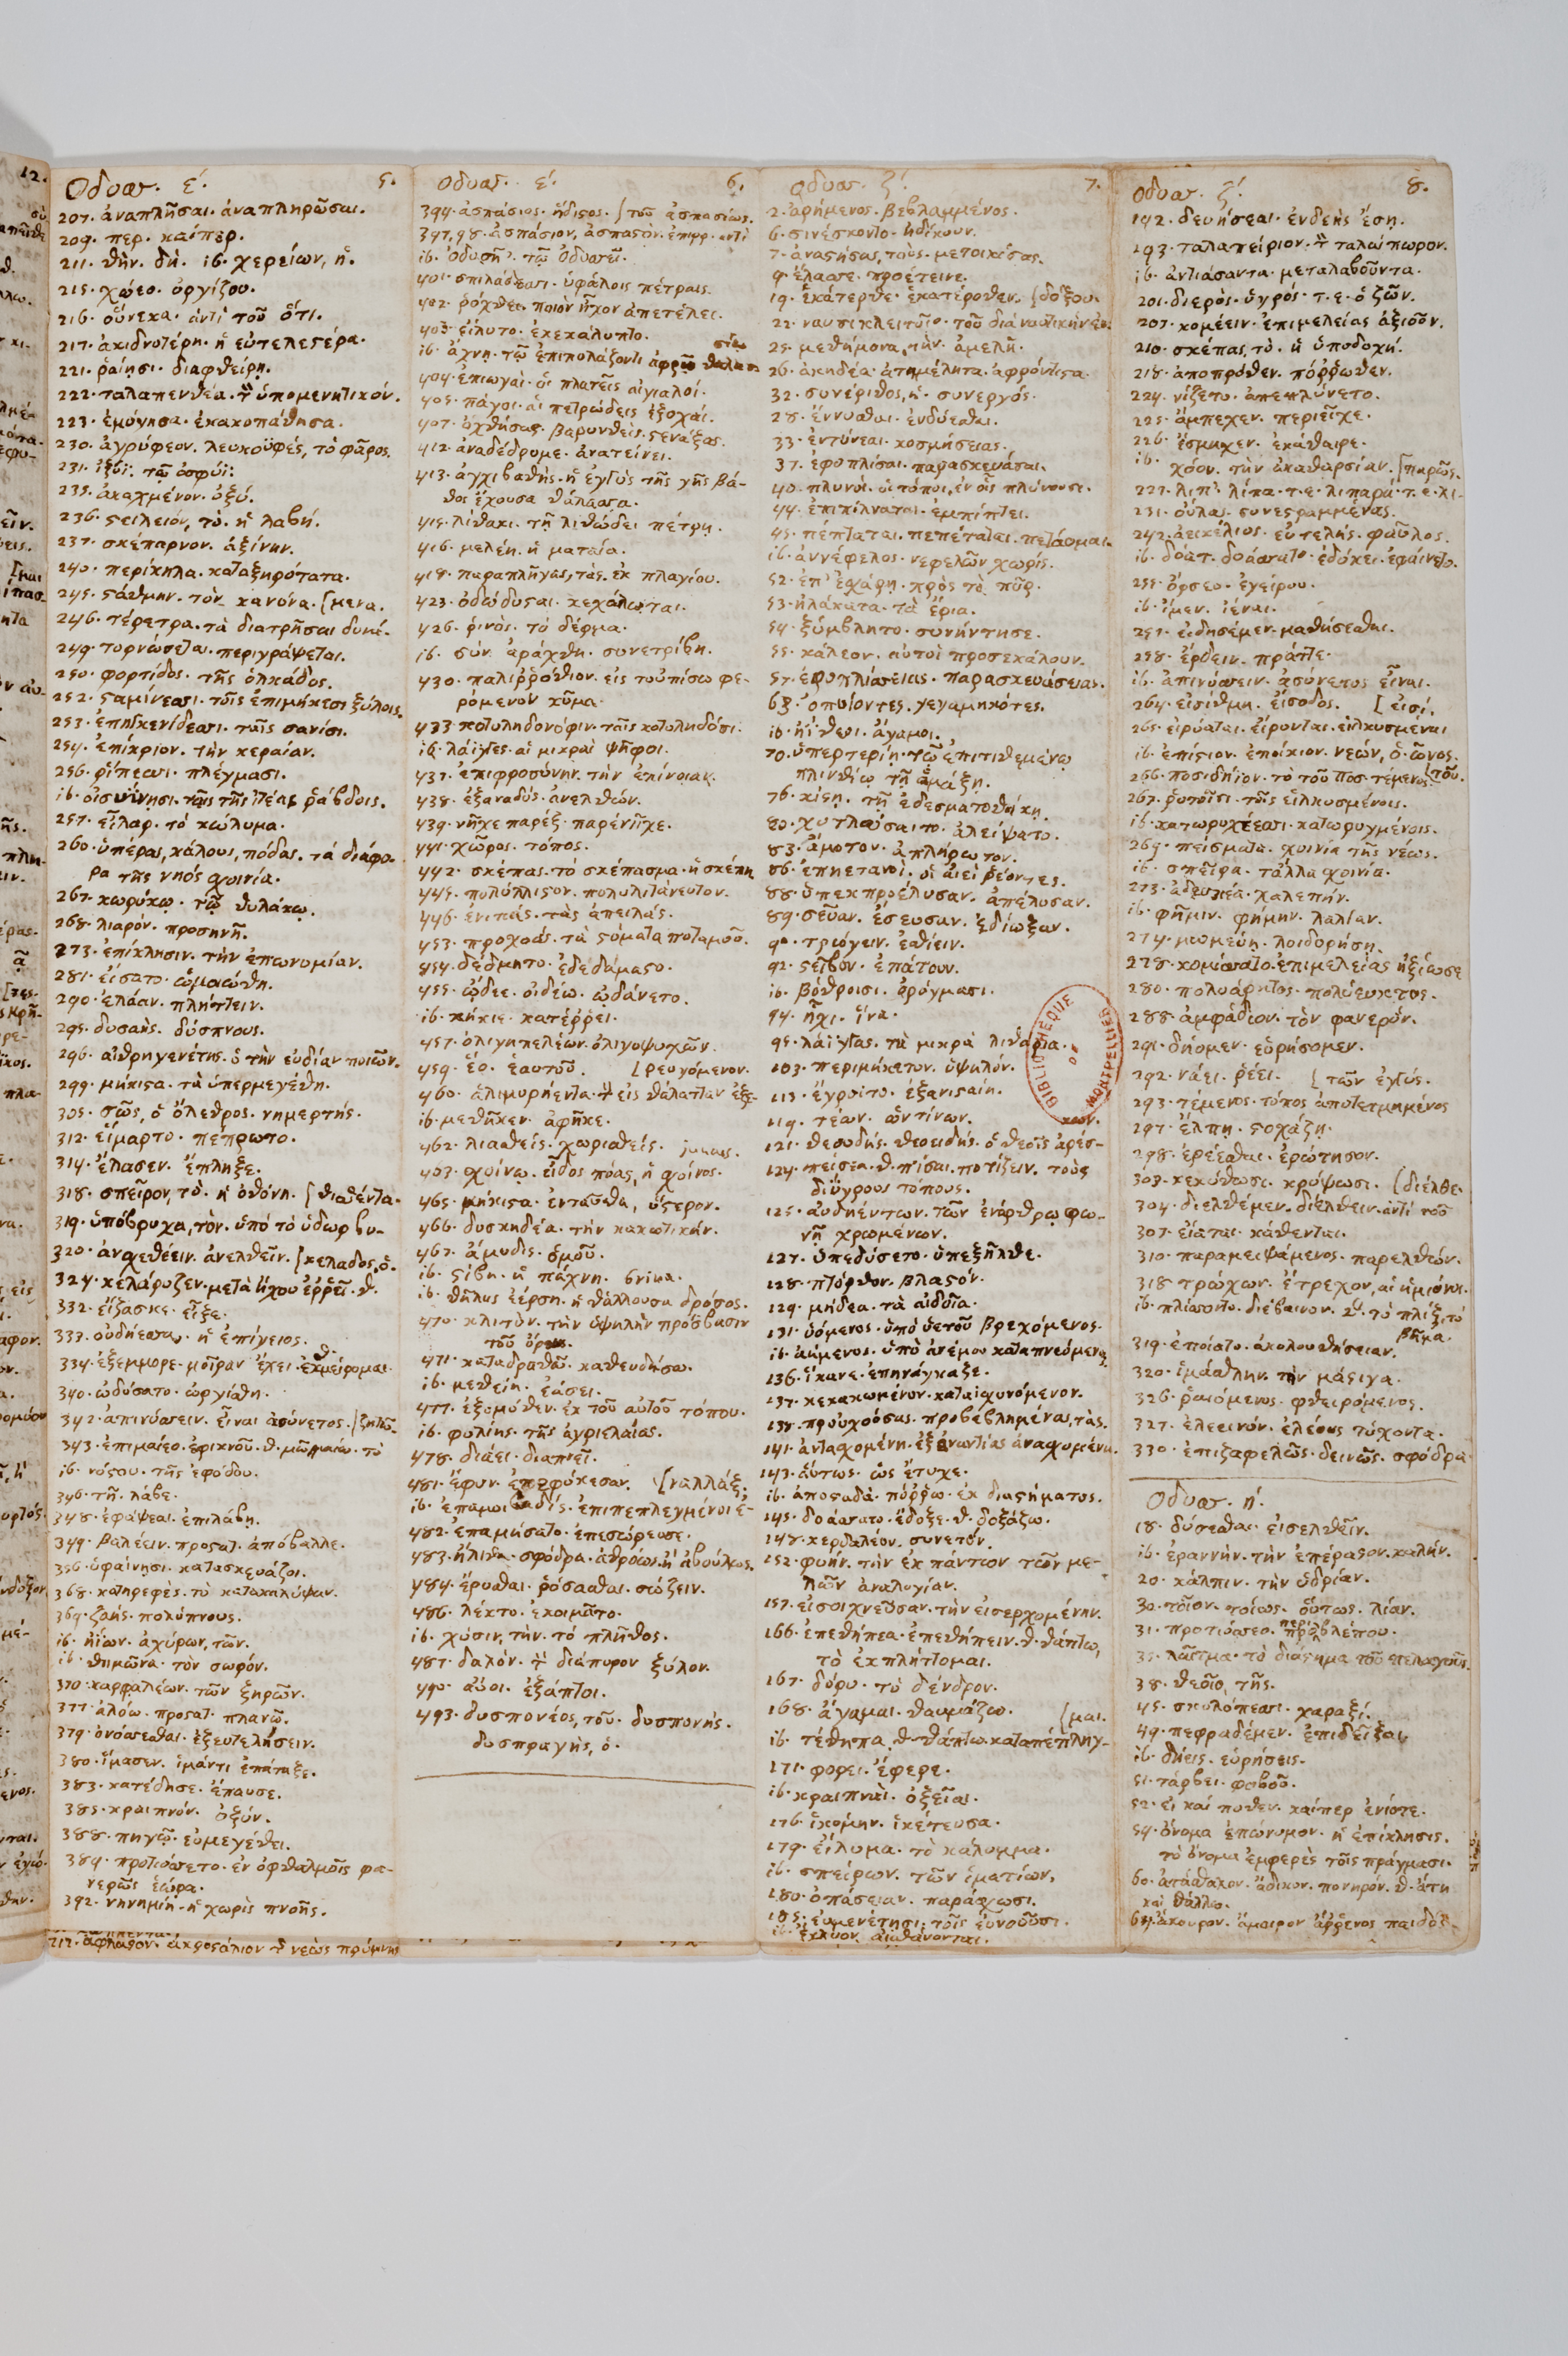 Οδυσσ. έ. 5.
207. ἀναπλῆσαι. ἀναπληρῶσαι.
209. περ. καίπερ.
211. θὴν. δὴ. ib. χερείων, ἡ.
215. χώεο. ὀργίζου.
216. οὕνεκα. ἀντὶ τοῦ ὅτι.
217. ἀκιδνοτέρη. ἡ εὐτελεστέρα.
221. ῥαίῃσι. διαφθείρῃ.
222. ταλαπενθέα. τὸν ὑπομενητικόν.
223. ἐμόγησα. ἐκακοπάθησα.
230. ἀργύφεον. λευκοϋφές, τὸ φᾶρος.
231. ἰξυῖ. τῷ ὀσφύϊ.
235. ἀκαχμένον. ὀξύ.
236. στειλειόν, τὸ. ἡ λαβή.
237. σκέπαρνον. ἀξίνην.
240. περίκηλα. καταξηρότατα.
245. στάθμην. τὸν κανόνα. [μενα.
246. τέρετρα. τὰ διατρῆσαι δυνά-
249. τορνώσεται. περιγράψεται.
250. φορτίδος. τῆς ὁλκάδος.
252. σταμίνεσσι. τοῖς ἐπιμήκεσι ξύλοις.
253. ἐπηγκενίδεσσι. ταῖς σανίσι.
254. ἐπίκριον. τὴν κεραίαν.
256. ῥίπεσσι. πλέγμασι.
ib. οἰσυΐνῃσι. ταῖς τῆς ἰτέας ῥάβδοις.
257. εἶλαρ. τὸ κώλυμα.
260. ὑπέρας, κάλους, πόδας. τὰ διάφο-
ρα τῆς νηὸς σχοινία.
267. κωρύκῳ. τῷ θυλάκῳ.
268. λιαρόν. προσηνῆ.
273. ἐπίκλησιν. τὴν ἐπωνυμίαν.
281. εἴσατο. ὡμοιώθη.
290. ἐλάαν. πλήττειν.
295. δυσαής. δύσπνους.
296. αἰθρηγενέτης. ὁ τὴν εὐδίαν ποιῶν.
299. μήκιστα. τὰ ὑπερμεγέθη.
305. σῶς, ὁ ὄλεθρος. νημερτής.
312. εἵμαρτο. πέπρωτο.
314. ἔλασεν. ἔπληξε.
318. σπεῖρον, τὸ. ἡ ὀθόνη. [θισθέντα.
319. ὑπόβρυχα, τὸν. ὑπὸ τὸ ὕδωρ βυ-
320. ἀνσχεθέειν. ἀνελθεῖν. [κελαδος, ὁ.
324. κελάρυζεν. μετὰ ἤχου ἐῤῥεῖ. θ.
332. εἴξασκε. εἶξε.
333. οὐδήεσσα. ἡ ἐπίγειος.
334. ἐξέμμορε. μοῖραν ἔχει. θ. ἐκμείρομαι.
340. ὠδύσατο. ὠργίσθη.
342. ἀπινύσσειν. εἶναι ἀσύνετος. [ζητῶ.
343. ἐπιμαίεο. ἐφικνοῦ. θ. μῶ, μαίω. τὸ
ib. νόστου. τῆς ἐφόδου.
346. τῆ. λάβε.
348. ἐφάψεαι. ἐπιλάβῃ.
349. βαλέειν. προστατ. ἀπόβαλλε.
356. ὑφαίνῃσι. κατασκευάζοι.
368. κατηρεφές. τὸ κατακαλύψαν.
369. ζαής. πολύπνους.
ib. ἠΐων. ἀχύρων, τῶν.
ib. θημῶνα. τὸν σωρόν.
370. καρφαλέων. τῶν ξηρῶν.
377. ἀλόω. προστατ. πλανῶ.
379. ὀνόσσεσθαι. ἐξευτελήσειν.
380. ἵμασεν. ἱμάντι ἐπάταξε.
383. κατέδησε. ἔπαυσε.
385. κραιπνόν. ὀξύν.
388. πηγῷ. εὐμεγέθει.
389. προτιόσσετο. ἐν ὀφθαλμοῖς φα-
νερῶς ἑώρα.
392. νηνημίη. ἡ χωρὶς πνοῆς.
Οδυσσ. έ. 6.
394. ἀσπάσιος. ἥδιστος. [τοῦ ἀσπασίως.
397, 98. ἀσπάσιον, ἀσπαστὸν. ἐπιρρ. ἀντὶ
ib. Ὀδυσῆϊ. τῷ Ὀδυσσεῖ.
401. σπιλάδεσσι. ὑφάλοις πέτραις.
402. ῥόχθει. ποιὸν ἦχον ἀπετέλει.
403. εἴλυτο. ἐκεκάλυπτο.
ib. ἄχνῃ. τῷ ἐπιπολάζοντι ἀφρῷ θαλασσίῳ
404. ἐπιωγαὶ. οἱ πλατεῖς αἰγιαλοί.
405. πάγοι. αἱ πετρώδεις ἐξοχαί.
407. ὀχθήσας. βαρυνθεὶς. στενάξας.
412. ἀναδέδρομε. ἀνατείνει.
413. ἀγχιβαθὴς. ἡ ἐγγὺς τῆς γῆς βά-
θος ἔχουσα θάλασσα.
415. λίθακι. τῇ λιθώδει πέτρῃ.
416. μελέη. ἡ ματαία.
418. παραπλῆγας, τὰς. ἐκ πλαγίου.
423. ὀδώδυσται. κεχόλωται.
426. ῥινὸς. τὸ δέρμα.
ib. σὺν. ἀράχθη. συνετρίβη.
430. παλιῤῥόθιον. εἰς τοὐπίσω φε-
ρόμενον κῦμα.
433. κοτυληδονόφιν. ταῖς κοτυληδόσι.
ib. λάϊγγες. αἱ μικραὶ ψῆφοι.
437. ἐπιφροσύνην. τὴν ἐπίνοιαν.
438. ἐξαναδύς. ἀνελθών.
439. νῆχε παρέξ. παρένηχε.
441. χῶρος. τόπος.
442. σκέπας. τὸ σκέπασμα. ἡ σκέπη
445. πολύλλιστον. πολυλιτάνευτον.
446. ἐνιπάς. τὰς ἀπειλάς.
453. προχοάς. τὰ στόματα ποταμοῦ.
454. δέδμητο. ἐδεδάμαστο.
455. ᾤδεε. οἰδέω. ὠδάνετο.
ib. κήκιε. κατέῤῥει.
457. ὀλιγηπελέων. ὀλιγοψυχῶν.
459. ἕο. ἑαυτοῦ. [ρευγόμενον.
460. ἁλιμυρήεντα. τὸν εἰς θάλατταν ἐξε-
ib. μεθῆκεν. ἀφῆκε.
462. λιασθείς. χωρισθείς. juncus.
463. σχοίνῳ. εἶδος πόας, ἡ σχοίνος.
465. μήκιστα. ἐνταῦθα, ὕστερον.
466. δυσκηδέα. τὴν κακωτικήν.
467. ἄμυδις. ὁμοῦ.
ib. στίβη. ἡ πάχνη. brina.
ib. θῆλυς ἐέρση. ἡ θάλλουσα δρόσος.
470. κλιτὺν. τὴν ὑψηλὴν πρόσβασιν
τοῦ ὄρους.
471. καταδραθῶ. καθευδήσω.
ib. μεθείη. ἐάσει.
477. ἐξ ὁμόθεν. ἐκ τοῦ αὐτοῦ τόπου.
ib. φυλίης. τῆς ἀγριελαίας.
478. διάει. διαπνεῖ.
481. ἔφυν. ἐπεφύκεσαν. [ναλλάξ.
ib. ἐπαμοιβαδίς. ἐπιπεπλεγμένοι ἐ-
482. ἐπαμήσατο. ἐπεσώρευσε.
483. ἤλιθα. σφόδρα. ἀθρόως. ἢ ἀβούλως.
484. ἔρυσθαι. ῥύσασθαι. σώζειν.
486. λέκτο. ἐκοιμᾶτο.
ib. χύσιν, τὴν. τὸ πλῆθος.
487. δαλόν. τὸ διάπυρον ξύλον.
490. αὔοι. ἐξάπτοι.
493. δυσπονέος, τοῦ. δυσπονής.
δυσπραγής, ὁ.
Οδυσσ. ζ. 7.
2. ἀρήμενος. βεβλαμμένος.
6. σινέσκοντο. ἠδίκουν.
7. ἀναστήσας, τοὺς. μετοικίσας.
9. ἔλασσε. προέτεινε.
19. ἑκάτερθε. ἑκατέρωθεν. [δόξου.
22. ναυσικλειτοῖο. τοῦ διὰ ναυτικὴν ἐν-
25. μεθήμονα, τὴν. ἀμελῆ.
26. ἀκηδέα. ἀτημέλητα. ἀφρόντιστα.
32. συνέριθος, ἡ. συνεργός.
28. ἕννυσθαι. ἐνδύεσθαι.
33. ἐντύνεαι. κοσμήσειας.
37. ἐφοπλίσαι. παρασκευάσαι.
40. πλυνοὶ. οἱ τόποι, ἐν οἷς πλύνουσι.
44. ἐπιπίλναται. ἐμπίπτει.
45. πέπταται. πεπέταται. πετάομαι.
ib. ἀννέφελος. νεφελῶν χωρίς.
52. ἐπ' ἐσχάρῃ. πρὸς τὸ πῦρ.
53. ἠλάκατα. τὰ ἔρια.
54. ξύμβλητο. συνήντησε.
55. κάλεον. αὐτοὶ προσεκάλουν.
57. ἐφοπλίσσειας. παρασκευάσειας.
63. ὀπυίοντες. γεγαμηκότες.
ib. ἠΐθεοι. ἄγαμοι.
70. ὑπερτερίῃ. τῷ ἐπιτιθεμένῳ
πλινθίῳ τῇ ἁμάξῃ.
76. κίστῃ. τῇ ἐδεσματοθήκῃ.
80. χυτλώσαιτο. ἀλείψατο.
83. ἄμοτον. ἀπλήρωτον.
86. ἐπηετανοί. οἱ ἀεὶ ῥέοντες.
88. ὑπεκπροέλυσαν. ἀπέλυσαν.
89. σεῦαν. ἔσευσαν. ἐδίωξαν.
90. τρώγειν. ἐσθίειν.
92. στεῖβον. ἐπάτουν.
ib. βόθροισι. ὀρύγμασι.
94. ᾗχι. ἵνα.
95. λάϊγγας. τὰ μικρὰ λιθάρια.
103. περιμήκετον. ὑψηλόν.
113. ἔγροιτο. ἐξανισταίη. κων.
119. τέων. ὧντίνων.
121. θεουδής. θεοειδής. ὁ θεοῖς ἀρέσ-
124. πείσεα. θ. πίσαι. ποτίζειν. τοὺς
διΰγρους τόπους.
125. αὐδηέντων. τῶν ἐνάρθρῳ φω-
νῇ χρωμένων.
127. ὑπεδύσετο. ὑπεξῆλθε.
128. πτόρθον. βλαστόν.
129. μήδεα. τὰ αἰδοῖα.
131. ὑόμενος. ὑπὸ ὑετοῦ βρεχόμενος.
ib. ἀήμενος. ὑπὸ ἀνέμου καταπνεόμενος
136. ἵκανε. ἐπηνάγκαξε.
137. κεκακωμένον. καταισχυνόμενον.
138. προὐχούσας. προβεβλημένας, τὰς.
141. ἄντα σχομένη. ἐξ ἐναντίας ἀνασχομένη.
143. αὕτως. ὡς ἔτυχε.
ib. ἀποσταδὰ. πόῤῥω. ἐκ διαστήματος.
145. δοάσσατο. ἔδοξε. θ. δοξάζω.
148. κερδαλέον. συνετόν.
152. φυήν. τὴν ἐκ πάντων τῶν με-
λῶν ἀναλογίαν.
157. εἰσοιχνεῦσαν. τὴν εἰσερχομένην.
166. ἐπεθήπεα. ἐπεθήπειν. θ. θάπτω,
τὸ ἐκπλήττομαι.
167. δόρυ. τὸ δένδρον.
168. ἄγαμαι. θαυμάζω. [μαι.
ib. τέθηπα. θ. θάπτω. καταπέπληγ-
171. φορει. ἔφερε.
ib. κραιπναὶ. ὀξεῖαι.
176. ἱκόμην. ἱκέτευσα.
179. εἴλυμα. τὸ κάλυμμα.
ib. σπείρων. τῶν ἱματίων.
180. ὀπάσειαν. παράσχωσι.
185. εὐμενέτῃσι. τοῖς εὐνοοῦσι.
ib. ἔκλυον. αἰσθάνονται.
BIBLIOTHEQUE DE MONTPELLIER
Οδυσσ. ζ. 8.
192. δευήσεαι. ἐνδεὴς ἔσῃ.
193. ταλαπείριον. τὸν ταλαίπωρον.
ib. ἀντιάσαντα. μεταλαβοῦντα.
201. διερὸς. ὑγρός. τ. ε. ὁ ζῶν.
207. κομέειν. ἐπιμελείας ἀξιοῦν.
210. σκέπας, τὸ. ἡ ὑποδοχή.
218. ἀποπρόθεν. πόῤῥωθεν.
224. νίζετο. ἀπεπλύνετο.
225. ἄμπεχεν. περιεῖχε.
226. ἔσμηχεν. ἐκάθαιρε.
ib. χόον. τὴν ἀκαθαρσίαν. [παρῶς.
227. λίπ'. λίπα. τ. ε. λιπαρὰ. τ. ε. λι-
231. οὔλας. συνεστραμμένας.
242. ἀεικέλιος. εὐτελής. φαῦλος.
ib. δόατ. δοάσσατο. ἐδόκει. ἐφαίνετο.
255. ὄρσεο. ἐγείρου.
ib. ἴμεν. ἰέναι.
257. εἰδησέμεν. μαθήσεσθαι.
258. ἔρδειν. πρᾶττε.
ib. ἀπινύσσειν. ἀσύνετος εἶναι.
264. εἰσίθμη. εἴσοδος. [εἰσί.
265. εἰρύαται. εἴρονται. εἱλκυσμέναι
ib. ἐπίστιον. ἐποίκιον. νεών, ὁ. ὦνος.
266. ποσιδήϊον. τὸ τοῦ Ποσ. τέμενος. [τοῦ.
267. ῥυτοῖσι. τοῖς εἱλκυσμένοις.
ib. κατωρυχέεσσι. κατωρυγμένοις.
269. πείσματα. σχοινία τῆς νέως.
ib. σπεῖρα. τἄλλα σχοινία.
273. ἀδευκέα. χαλεπήν.
ib. φῆμιν. φήμην. λαλίαν.
274. μωμεύῃ. λοιδορήσῃ.
278. κομίσσατο. ἐπιμελείας ἠξίωσε
280. πολυάρητος. πολύευκτος.
288. ἀμφάδιον. τὸν φανερόν.
291. δήομεν. εὑρήσομεν.
292. νάει. ῥέει. [τῶν ἐγγύς.
293. τέμενος. τόπος ἀποτετμημένος
297. ἔλπῃ. στοχάζῃ.
298. ἐρέεσθαι. ἐρώτησον.
303. κεκύθωσι. κρύψωσι. [διέλθε.
304. διελθέμεν. διελθεῖν. ἀντὶ τοῦ
307. εἵαται. κάθενται.
310. παραμειψάμενος. παρελθών.
318. τρώχων. ἔτρεχον, αἱ ἡμίονοι.
ib. πλίσσοντο. διέβαινον. θ. τὸ πλίξ, τὸ
βῆμα.
319. ἑποίατο. ἀκολουθήσειαν.
320. ἱμάσθλην. τὴν μάστιγα.
326. ῥαιόμενος. φθειρόμενος.
327. ἐλεεινόν. ἐλέους τύχοντα.
330. ἐπιζαφελῶς. δεινῶς. σφόδρα.
Οδυσσ. η.
18. δύσεσθαι. εἰσελθεῖν.
ib. ἐραννήν. τὴν ἐπέραστον. καλήν.
20. κάλπιν. τὴν ὑδρίαν.
30. τοῖον. τοίως. οὕτως. λίαν.
31. προτιόσσεο. περιβλέπου.
35. λαῖτμα. τὸ διάστημα τοῦ πελάγους.
38. θεοῖο, τῆς.
45. σκολόπεσσι. χαραξί.
49. πεφραδέμεν. ἐπιδεῖξαι.
ib. δήεις. εὑρήσεις.
51. τάρβει. φοβοῦ.
52. εἰ καί ποθεν. καίπερ ἐνίοτε.
54. ὄνομα ἐπώνυμον. ἡ ἐπίκλησις.
τὸ ὄνομα ἐμφερὲς τοῖς πράγμασι.
60. ἀτάσθαλον. ἄδικον. πονηρόν. θ. ἄτη
καὶ θάλλω.
64. ἄκουρον. ἄμοιρον ἄῤῥενος παιδός.